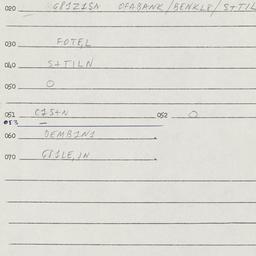 020 G81Z1SA OFABANK/BENKLE/S+TIL
030 FOTEL
040 S+TILN
050 O
051 C15+N 052 O
053 —
060 DEMB1N1
070 G81LE,IN